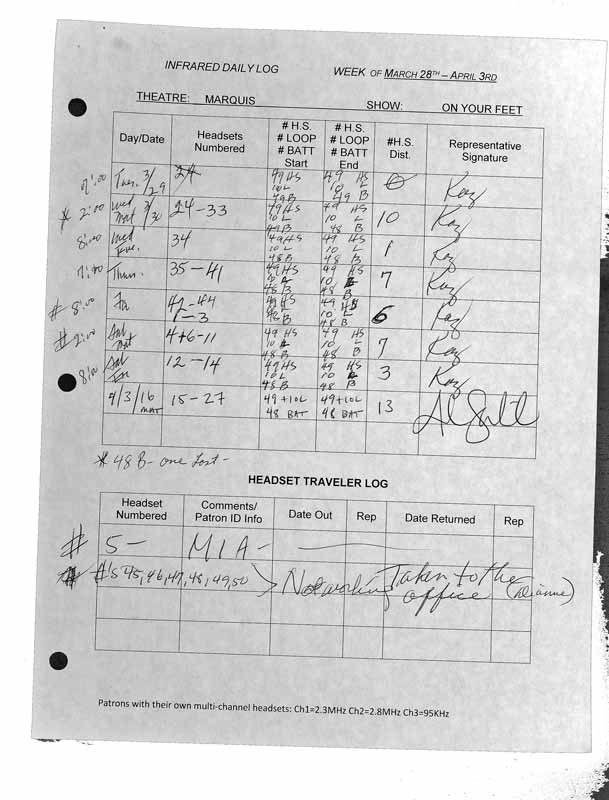 INFRARED DAILY LOG WEEK OF MARCH 28TH – APRIL 3RD
THEATRE: MARQUIS SHOW: ON YOUR FEET
Day/Date Headsets Numbered # H.S. # LOOP # BATT Start # H.S. # LOOP # BATT End #H.S. Dist. Representative Signature
7:00 Tues. 3/29 49 HS 10 L 49 B 49 HS 10 L 49 B 0 Kay
* 2:00 Wed Mat 3/30 24-33 49 HS 10 L 49 B 49 HS 10 L 48 B 10 Kay
8:00 Wed Eve. 34 49 HS 10 L 48 B 49 HS 10 L 48 B 1 Kay
7:00 Thurs. 35-41 49 HS 10 L 48 B 49 HS 10 L 48 B 7 Kay
# 8:00 Fri 42-44 1-3 49 HS 10 L 48 B 49 HS 10 L 48 B 6 Kay
# 2:00 Sat Mat 4+6-11 49 HS 10 L 48 B 49 HS 10 L 48 B 7 Kay
8:00 Sat Eve 12-14 49 HS 10 L 48 B 49 HS 10 L 48 B 3 Kay
4/3/16 MAT 15-27 49+10L 48 BAT 49+10L 48 BAT 13
* 48 B - one Lost -
HEADSET TRAVELER LOG
Headset Numbered Comments/ Patron ID Info Date Out Rep Date Returned Rep
# 5- MIA-
#'s 45,46,47,48,49,50 Not working Taken to the office (Dianne)
Patrons with their own multi-channel headsets: Ch1=2.3MHz Ch2=2.8MHz Ch3=95KHz